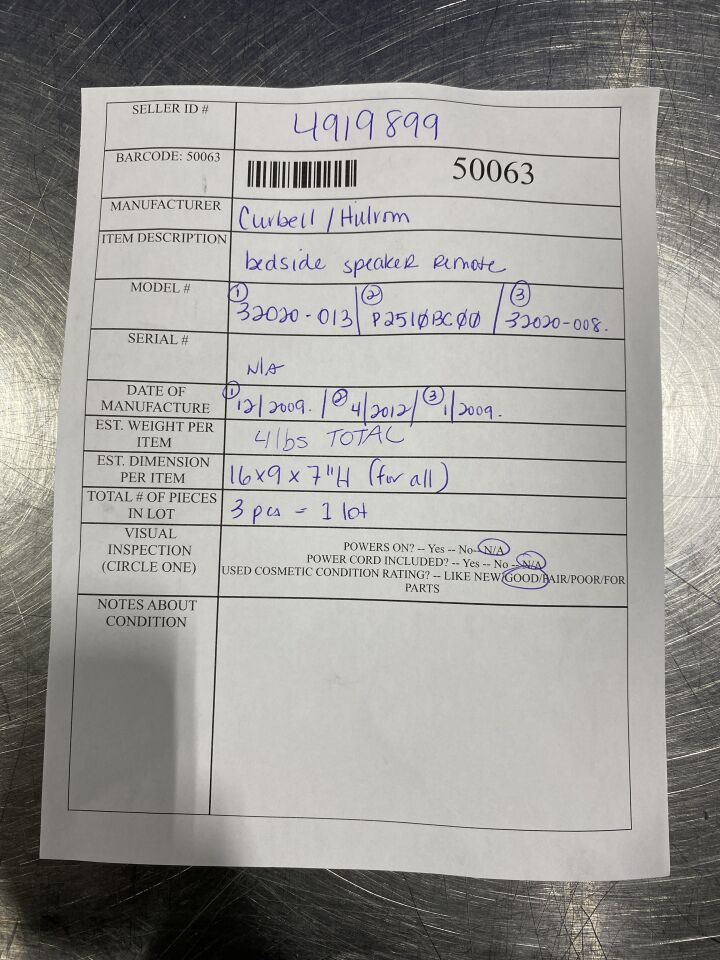 SELLER ID # 4919899
BARCODE: 50063 50063
MANUFACTURER Curbell / Hilrom
ITEM DESCRIPTION bedside speaker remote
MODEL # ① 32020-013 | ② P2510BC00 / ③ 32020-008.
SERIAL # N/A
DATE OF
MANUFACTURE ① 12/2009. / ② 4/2012 / ③ 1/2009.
EST. WEIGHT PER
ITEM 4 lbs TOTAL
EST. DIMENSION
PER ITEM 16 x 9 x 7"H (for all)
TOTAL # OF PIECES
IN LOT 3 pcs = 1 lot
VISUAL
INSPECTION
(CIRCLE ONE)
POWERS ON? -- Yes -- No-- N/A
POWER CORD INCLUDED? -- Yes -- No -- N/A
USED COSMETIC CONDITION RATING? -- LIKE NEW/GOOD/FAIR/POOR/FOR
PARTS
NOTES ABOUT
CONDITION